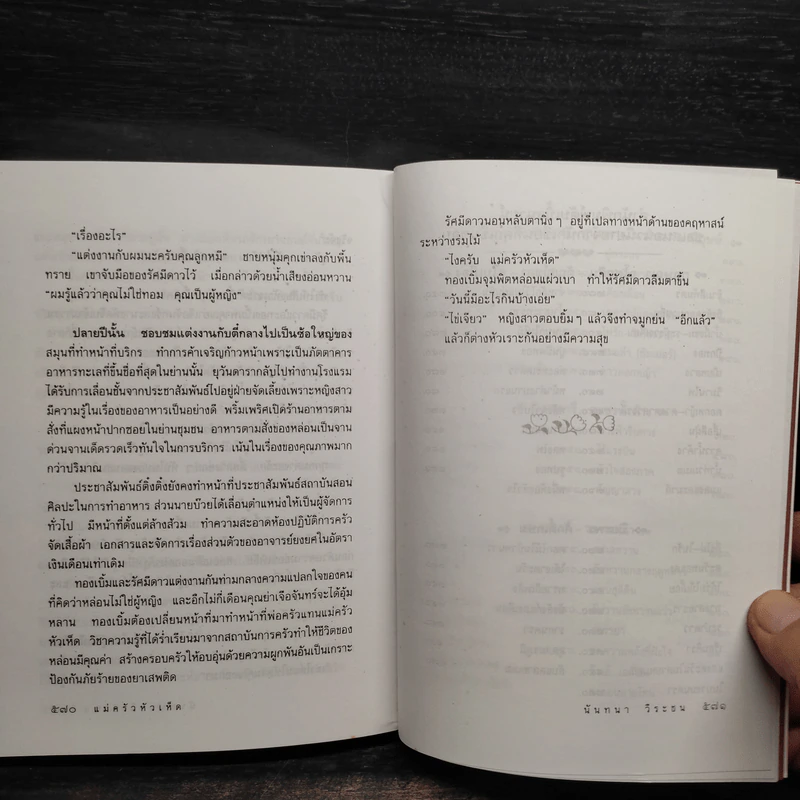 “เรื่องอะไร”
“แต่งงานกับผมนะครับคุณลูกหมี” ชายหนุ่มคุกเข่าลงกับพื้น
ทราย เขาจับมือของรัศมีดาวไว้ เมื่อกล่าวด้วยน้ำเสียงอ่อนหวาน
“ผมรู้แล้วว่าคุณไม่ใช่ทอม คุณเป็นผู้หญิง”
ปลายปีนั้น ชอบชมแต่งงานกับตี๋กลางไปเป็นซ้อใหญ่ของ
สมุนที่ทำหน้าที่บริกร ทำการค้าเจริญก้าวหน้าเพราะเป็นภัตตาคาร
อาหารทะเลที่ขึ้นชื่อที่สุดในย่านนั้น ยุวันดากลับไปทำงานโรงแรม
ได้รับการเลื่อนชั้นจากประชาสัมพันธ์ไปอยู่ฝ่ายจัดเลี้ยงเพราะหญิงสาว
มีความรู้ในเรื่องของอาหารเป็นอย่างดี พริ้มเพริศเปิดร้านอาหารตาม
สั่งที่แผงหน้าปากซอยในย่านชุมชน อาหารตามสั่งของหล่อนเป็นจาน
ด่วนจานเด็ดรวดเร็วทันใจในการบริการ เน้นในเรื่องของคุณภาพมาก
กว่าปริมาณ
ประชาสัมพันธ์ติ๋งติ๋งยังคงทำหน้าที่ประชาสัมพันธ์สถาบันสอน
ศิลปะในการทำอาหาร ส่วนนายบ๊วยได้เลื่อนตำแหน่งให้เป็นผู้จัดการ
ทั่วไป มีหน้าที่ตั้งแต่ล้างส้วม ทำความสะอาดห้องปฏิบัติการครัว
จัดเสื้อผ้า เอกสารและจัดการเรื่องส่วนตัวของอาจารย์ยงยศในอัตรา
เงินเดือนเท่าเดิม
ทองเบิ้มและรัศมีดาวแต่งงานกันท่ามกลางความแปลกใจของคน
ที่คิดว่าหล่อนไม่ใช่ผู้หญิง และอีกไม่กี่เดือนคุณย่าเจือจันทร์จะได้อุ้ม
หลาน ทองเบิ้มต้องเปลี่ยนหน้าที่มาทำหน้าที่พ่อครัวแทนแม่ครัว
หัวเห็ด วิชาความรู้ที่ได้ร่ำเรียนมาจากสถาบันการครัวทำให้ชีวิตของ
หล่อนมีคุณค่า สร้างครอบครัวให้อบอุ่นด้วยความผูกพันอันเป็นเกราะ
ป้องกันภัยร้ายของยาเสพติด
๕๗๐ แม่ครัวหัวเห็ด
รัศมีดาวนอนหลับตานิ่งๆ อยู่ที่เปลทางหน้าด้านของคฤหาสน์
ระหว่างร่มไม้
“ไงครับ แม่ครัวหัวเห็ด”
ทองเบิ้มจุมพิตหล่อนแผ่วเบา ทำให้รัศมีดาวลืมตาขึ้น
“วันนี้มีอะไรกินบ้างเอ่ย”
“ไข่เจียว” หญิงสาวตอบยิ้มๆ แล้วจึงทำจมูกย่น “อีกแล้ว”
แล้วก็ต่างหัวเราะกันอย่างมีความสุข
นันทนา วีระชน ๕๗๑